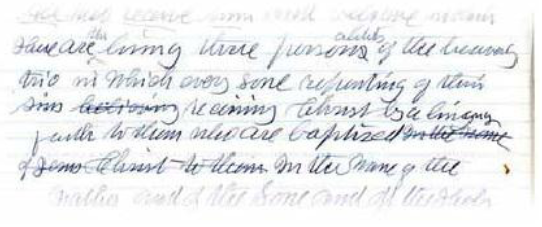 receive him with
Here are the living three personalities of the heavenly
trio in which every soul repenting of their
sins believing receiving Christ by a living
faith to them who are baptized in the name
of Jesus Christ to them In the name of the
Father and of the Sone and of the Holy